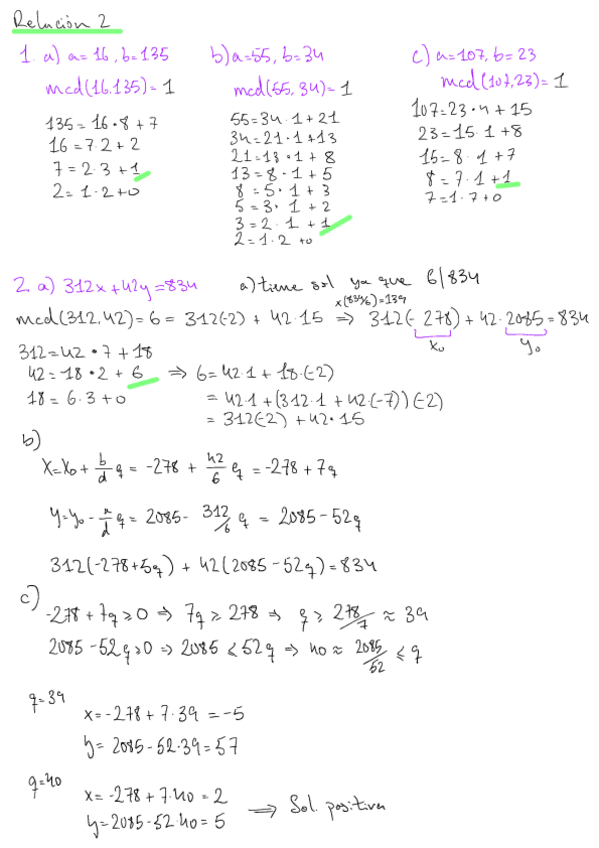 Relación 2
1. a) a=16, b=135
mcd(16,135)=1
135=16·8+7
16=7·2+2
7=2·3+1
2=1·2+0
b) a=55, b=34
mcd(55,34)=1
55=34·1+21
34=21·1+13
21=13·1+8
13=8·1+5
8=5·1+3
5=3·1+2
3=2·1+1
2=1·2+0
c) a=107, b=23
mcd(107,23)=1
107=23·4+15
23=15·1+8
15=8·1+7
8=7·1+1
7=1·7+0
2. a) 312x+42y=834 a) tiene sol ya que 6/834
x(834/6)=139
mcd(312,42)=6=312(-2)+42·15 ⇒ 312(-278)+42·2085=834
x₀ y₀
312=42·7+18
42=18·2+6 ⇒ 6=42·1+18·(-2)
18=6·3+0 =42·1+(312·1+42·(-7))(-2)
=312(-2)+42·15
b)
x=x₀+b/d q=-278+42/6 q=-278+7q
y=y₀-a/d q=2085-312/6 q=2085-52q
312(-278+5q)+42(2085-52q)=834
c)
-278+7q≥0 ⇒ 7q≥278 ⇒ q≥278/7≈39
2085-52q≥0 ⇒ 2085≤52q ⇒ 40≈2085/52≤q
q=39
x=-278+7·39=-5
y=2085-52·39=57
q=40
x=-278+7·40=2
y=2085-52·40=5 ⇒ Sol. positiva